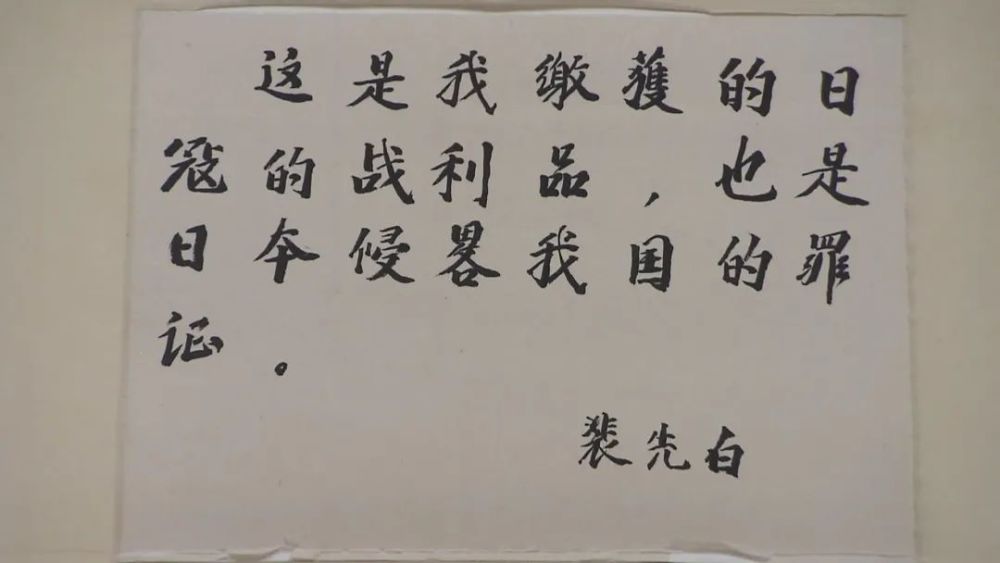 这是我缴獲的日
寇的战利品，也是
日本侵畧我国的罪
证。
裴先白